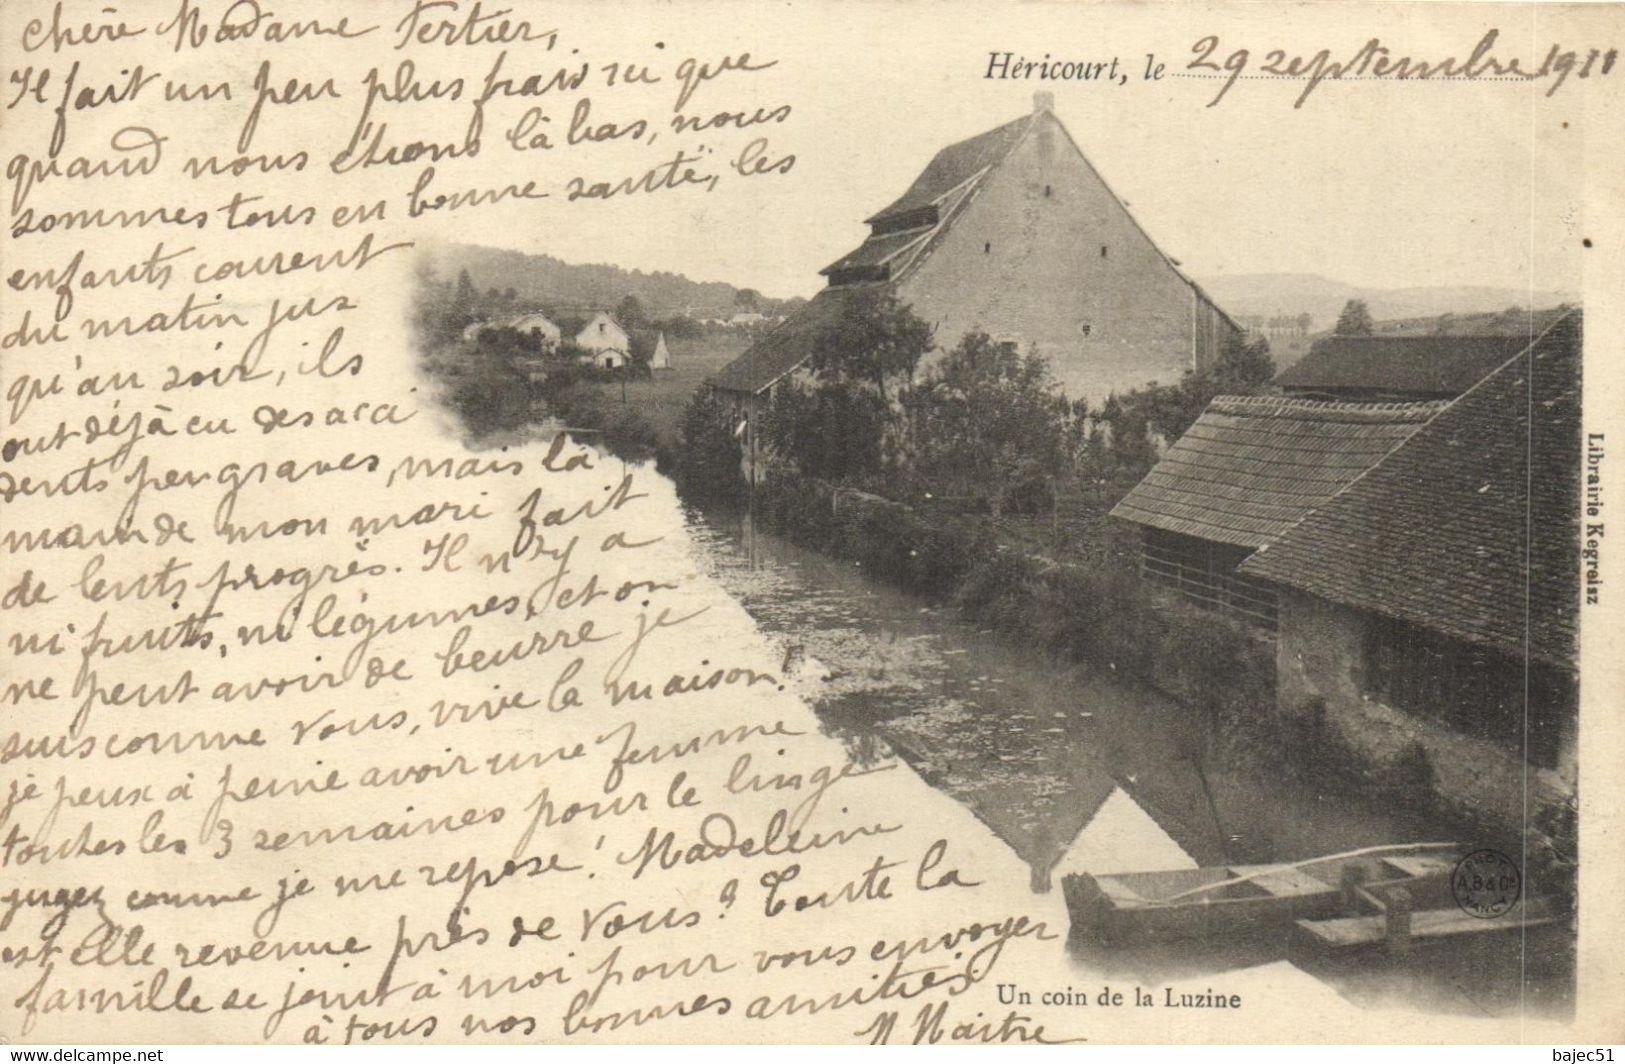 Chère Madame Tertier,
Héricourt, le 29 septembre 1911
Il fait un peu plus frais ici que
quand nous étions là bas, nous
sommes tous en bonne santé, les
enfants courent
du matin jus
qu'au soir, ils
ont déjà eu des acci
dents peu graves, mais la
main de mon mari fait
de lents progrès. Il n'y a
ni fruits, ni légumes, et on
ne peut avoir de beurre je
suis comme vous, vive la maison!
je peux à peine avoir une femme
toutes les 3 semaines pour le linge
jugez comme je me repose! Madeleine
est elle revenue près de vous? Toute la
famille se joint à moi pour vous envoyer
à tous nos bonnes amitiés.
M Maitre
Un coin de la Luzine
Librairie Kegreisz
PHOT
A.B & Cie
NANCY
bajec51